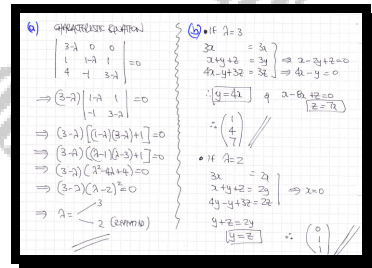 (a) CHARACTERISTIC EQUATION
| 3-λ 0 0 |
| 1 1-λ 1 | = 0
| 4 -1 3-λ |
⇒ (3-λ) | 1-λ 1 | = 0
| -1 3-λ |
⇒ (3-λ)[(1-λ)(3-λ)+1] = 0
⇒ (3-λ)[(λ-1)(λ-3)+1] = 0
⇒ (3-λ)(λ²-4λ+4) = 0
⇒ (3-λ)(λ-2)² = 0
⇒ λ = 3
2 (REPEATED)
(b) • IF λ=3
3x = 3x
x+y+z = 3y ⇒ x-2y+z=0
4x-y+3z = 3z ⇒ 4x-y=0
∴ y=4x & x-8x+z=0
z=7x
∴ (1
4
7)
• IF λ=2
3x = 2x
x+y+z = 2y ⇒ x=0
4y-y+3z = 2z
y+z=2y
y=z ∴ (0
1
1)